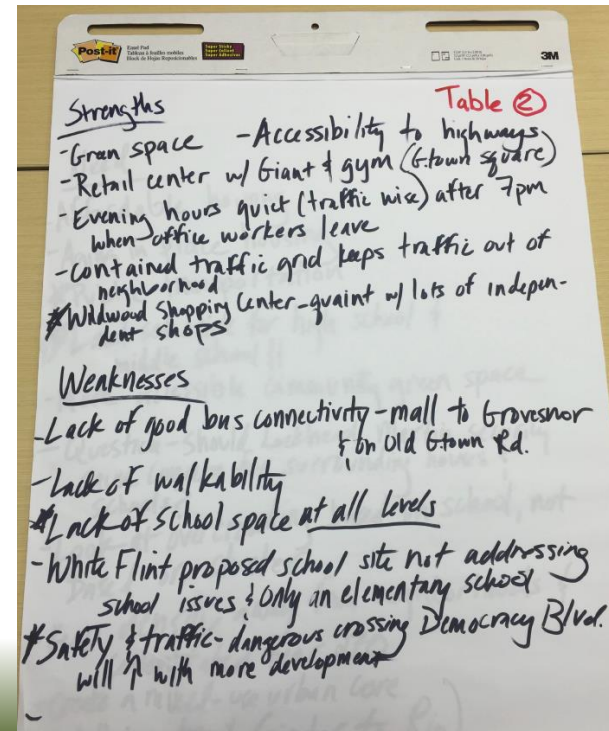 Post-it
Easel Pad
Tableau à feuilles mobiles
Block de Hojas Reposicionables
Super Sticky
3M
Table ②
Strengths
-Green space -Accessibility to highways
-Retail center w/ Giant & gym (G.town square)
-Evening hours quiet (traffic wise) after 7pm
when office workers leave
-Contained traffic grid keeps traffic out of
neighborhood
*Wildwood Shopping Center-quaint w/ lots of indepen-
dent shops
Weaknesses
-Lack of good bus connectivity-mall to Grovesnor
& on Old G.town Rd.
-Lack of walkability
*Lack of school space at all levels
-White Flint proposed school site not addressing
school issues & only an elementary school
*Safety & traffic-dangerous crossing Democracy Blvd.
will ↑ with more development